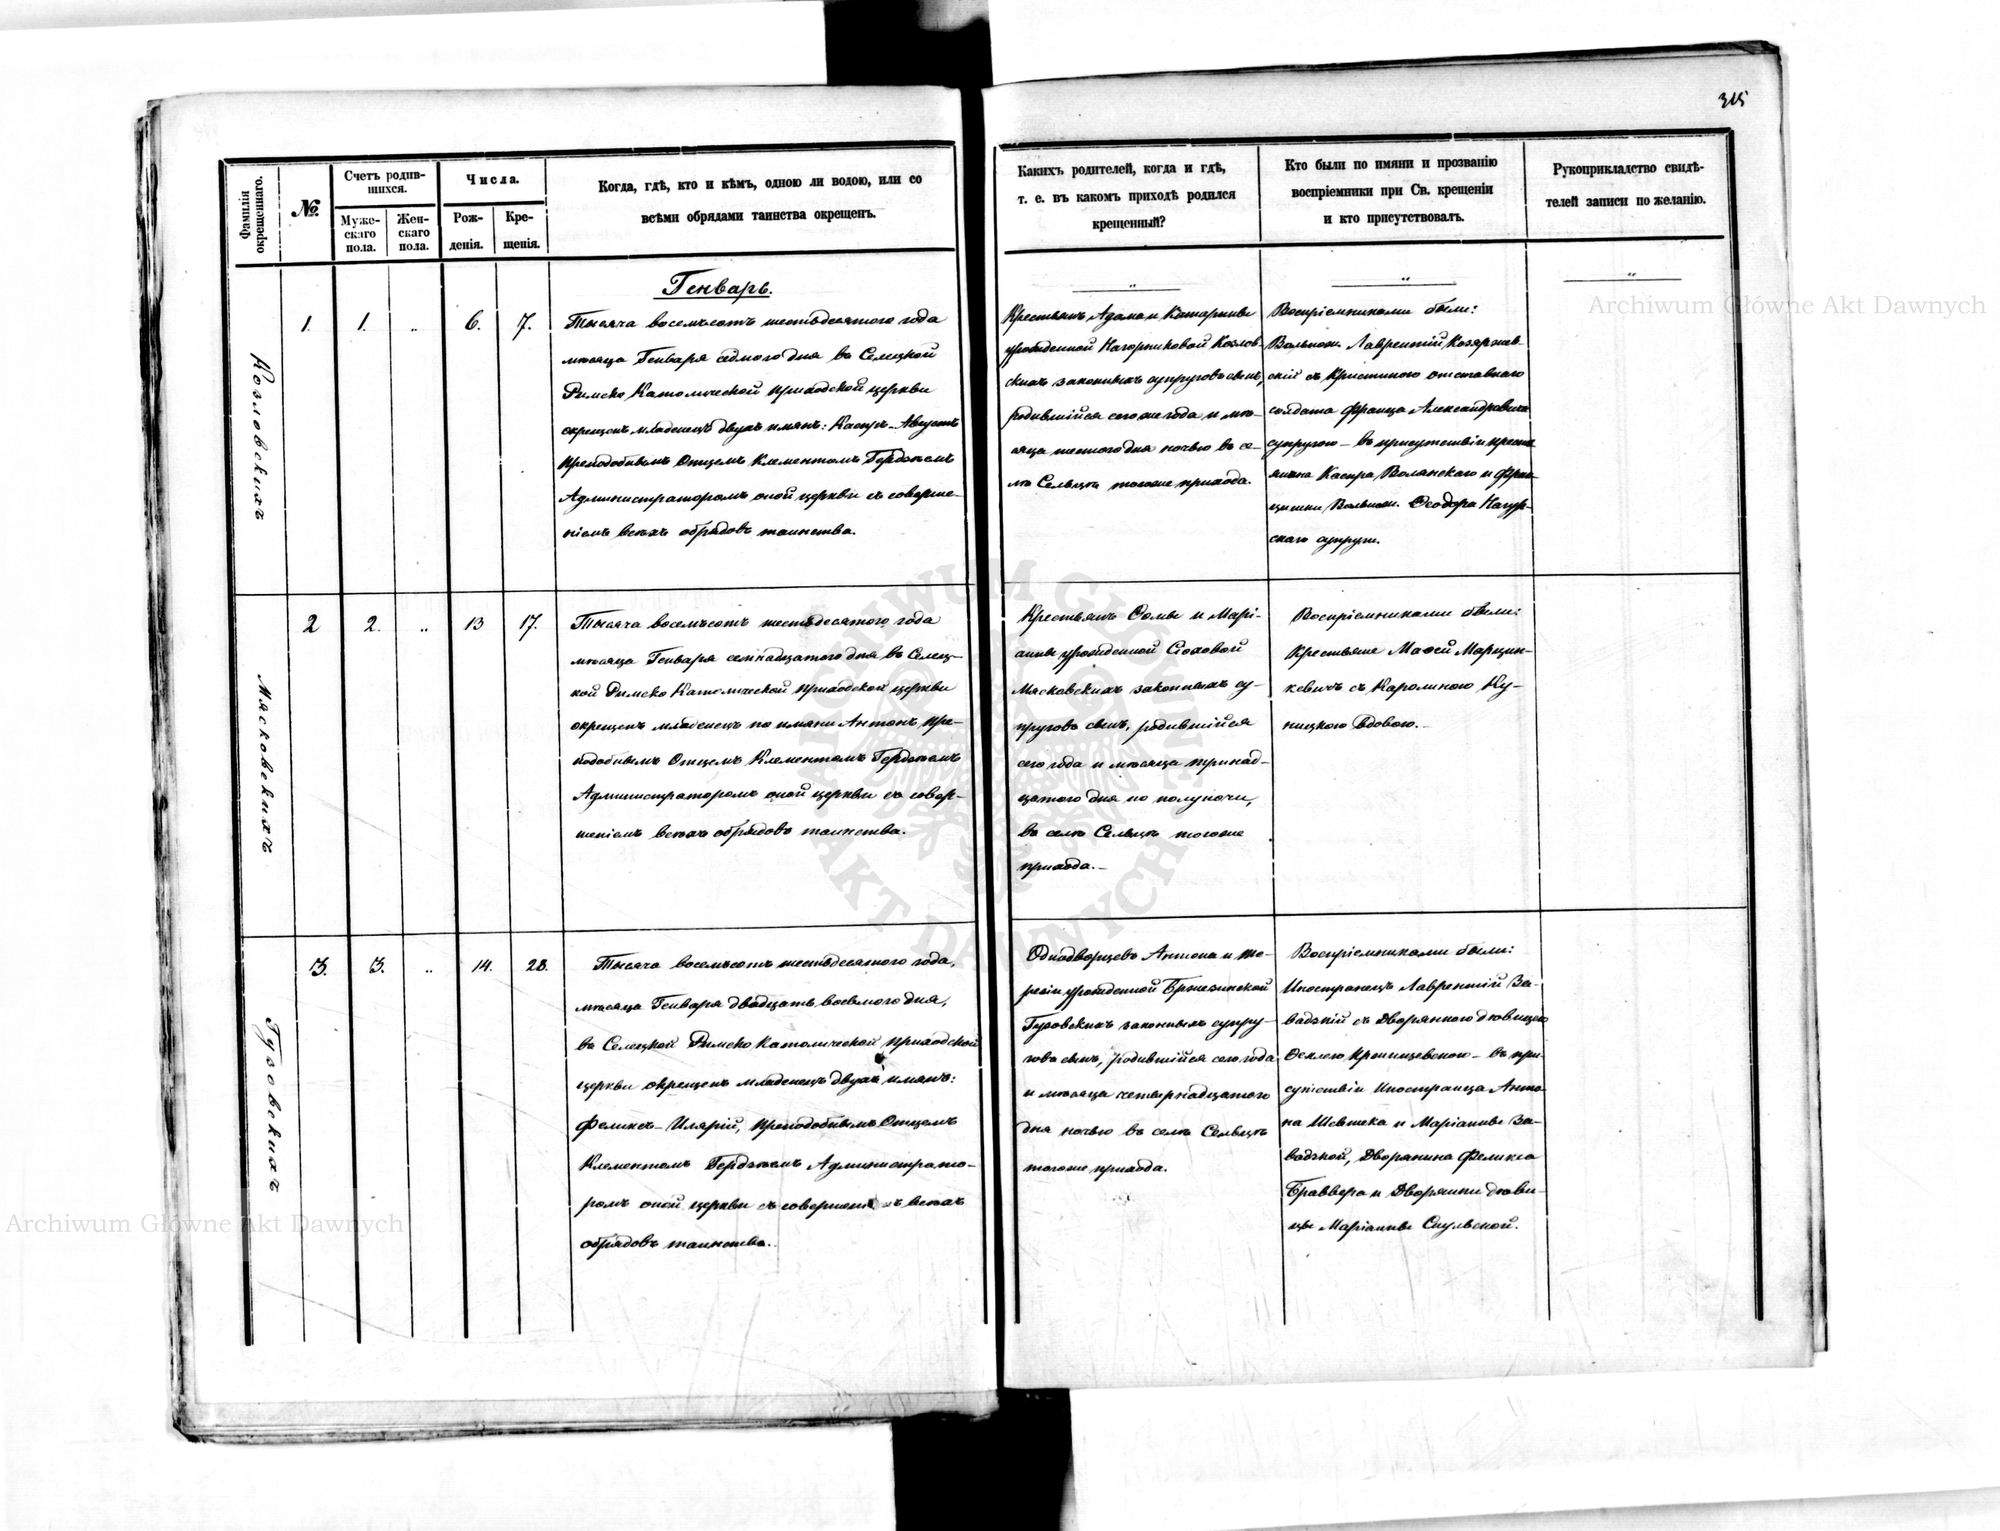 315
Фамилія окрещеннаго.
№.
Счетъ родив-
шихся.
Муже-
скаго
пола.
Жен-
скаго
пола.
Числа.
Рож-
денія.
Кре-
щенія.
Когда, гдѣ, кто и кѣмъ, одною ли водою, или со
всѣми обрядами таинства окрещенъ.
Какихъ родителей, когда и гдѣ,
т. е. въ какомъ приходѣ родился
крещенный?
Кто были по имяни и прозванію
воспріемники при Св. крещеніи
и кто присутствовалъ.
Рукоприкладство свидѣ-
телей записи по желанію.
Генварь.
Козловскихъ
1. 1. „ 6. 7.
Тысяча восемьсотъ шестьдесятого года
мѣсяца Генваря седмого дня въ Селецкой
Римско Католической приходской церкви
окрещенъ младенецъ двухъ имянъ: Каспръ-Августъ
Преподобнымъ Отцемъ Клементомъ
Администраторомъ оной церкви съ соверше-
ніемъ всѣхъ обрядовъ таинства.
Крестьянъ Адама и Катаржины
урожденной Нагорниковой Козлов-
скихъ законныхъ супруговъ сынъ,
родившійся сего же года и мѣ-
сяца шестого дня ночью въ се-
лѣ Сельцѣ тогоже прихода.
Воспріемниками были:
Вольнон. Лаврентій Козяржев-
скій съ Кристиною отставнаго
солдата Франца Александровича
супругою - въ присутствіи кресть-
янина Каспра Волянскаго и Фран-
цишки Вольнон. Ѳеодора Нагур-
скаго супруги.
Мясковскихъ
2 2. „ 13 17.
Тысяча восемьсотъ шестьдесятого года
мѣсяца Генваря семнадцатого дня въ Селец-
кой Римско Католической приходской церкви
окрещенъ младенецъ по имяни Антонъ пре-
подобнымъ Отцемъ Клементомъ
Администраторомъ оной церкви съ совер-
шеніемъ всѣхъ обрядовъ таинства.
Крестьянъ Ѳомы и Марі-
анны урожденной Соховой
Мясковскихъ законныхъ су-
пруговъ сынъ, родившійся
сего года и мѣсяца тринад-
цатого дня по полуночи,
въ селѣ Сельцѣ тогоже
прихода.-
Воспріемниками были:
Крестьяне Маѳей Марцин-
кевичъ съ Каролиною Ку-
ницкою вдовою.-
Гузовскихъ
3. 3. „ 14. 28.
Тысяча восемьсотъ шестьдесятого года,
мѣсяца Генваря двадцать восьмого дня,
въ Селецкой Римско Католической приходской
церкви окрещенъ младенецъ двухъ имянъ:
Феликсъ-Илярій, преподобнымъ Отцемъ
Клементомъ Администрато-
ромъ оной церкви съ совершеніемъ всѣхъ
обрядовъ таинства.
Однодворцевъ Антона и Те-
резіи урожденной Бржезинской
Гузовскихъ законныхъ супру-
говъ сынъ, родившійся сего года
и мѣсяца четырнадцатого
дня ночью въ селѣ Сельцѣ
тогоже прихода.
Воспріемниками были:
Иностранецъ Лаврентій За-
вадзкій съ Дворянкою дѣвицею
Ѳеклею - въ при-
сутствіи Иностранца Анто-
на Шевчека и Маріанны За-
вадзкой, Дворянина Феликса
Браввера и Дворянки дѣви-
цы Маріанны Скульской.
Archiwum Główne Akt Dawnych
Archiwum Główne Akt Dawnych
ARCHIWUM GŁÓWNE AKT DAWNYCH